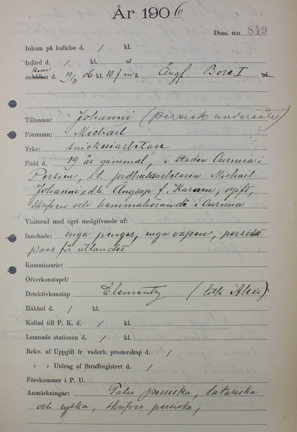 År 1906
Doss. nro 849
Inkom på kallelse d. / kl.
Införd d. / kl.
Kom 29/11 06 kl. 10 f.m. Ångf Bore I
Tillnamn: Johanni (persisk undersåte)
Förnamn: Michail
Yrke: snickeriarbetare
Född d. 19 år gammal, i staden Ourmia i
Persien, af jordbruksarbetaren Michail
Johanni och Angsap f. Karam, opft,
skrifven och hemmahörande i Ourmia
Visiterad med eget medgifvande af:
Innehade: inga pengar, inga vapen, persiskt
pass för utlandet
Kommissarie:
Öfverkonstapel:
Detektivkonstap
Häktad d. / kl.
Kallad till P. K. d. / kl.
Lemnade stationen d. / kl.
Rekv. af Uppgift fr. vederb. presterskap d. /
» » Utdrag af Straffregistret d. /
Förekommer i P. U.
Anmärkningar: Talar persiska, tatariska
och ryska, skrifver persiska,